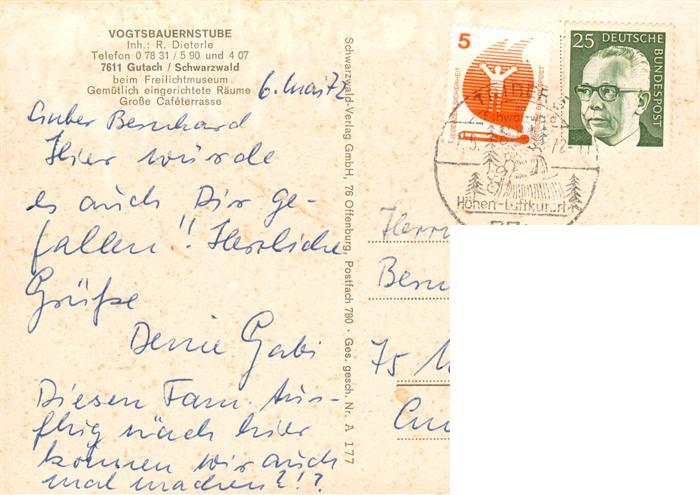 VOGTSBAUERNSTUBE
Inh.: R. Dieterle
Telefon 0 78 31 / 5 90 und 4 07
7611 Gutach / Schwarzwald
beim Freilichtmuseum
Gemütlich eingerichtete Räume
Große Caféterrasse
6. Mai 72
Lieber Bernhard
Hier würde
es auch Dir ge-
fallen!! Herzliche
Grüße
Deine Gabi
Diesen Fam. Aus-
flug nach hier
können wir auch
mal machen?!?
Schwarzwald-Verlag GmbH, 76 Offenburg, Postfach 780 · Ges. gesch. Nr. A 177
5
JEDERZEIT SICHERHEIT
DEUTSCHE BUNDESPOST
25 DEUTSCHE
BUNDESPOST
Schwarzwald
Höhen-Luftkurort
Herrn
75